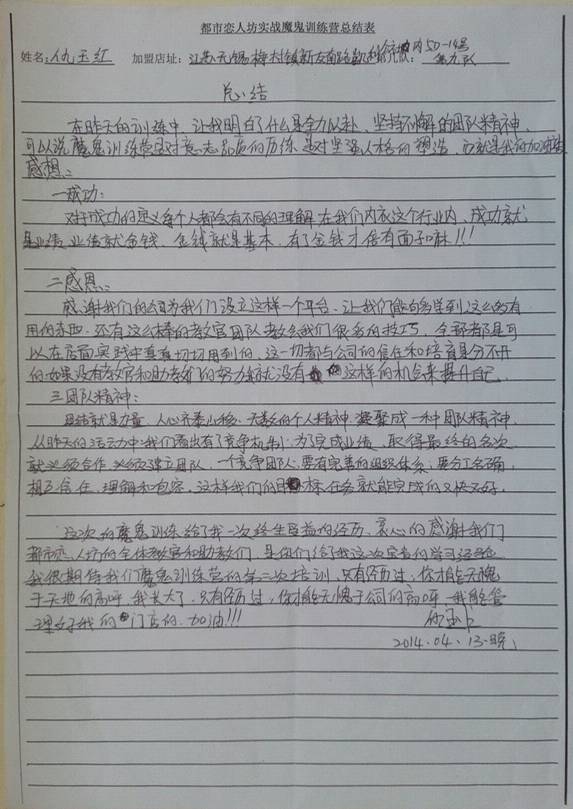 都市恋人坊实战魔鬼训练营总结表
姓名:仇玉红 加盟店址:江苏无锡梅村镇新友南路 内50-14号
总结
在昨天的训练中,让我明白了什么是全力以赴、坚持不懈的团队精神,
可以说魔鬼训练营是对意志品质的历练,是对坚强人格的塑造,
感想:
一成功:
对于成功的定义每个人都会有不同的理解,在我们内衣这个行业内,成功就
是业绩,业绩就金钱,金钱就是基本,有了金钱才倍有面子嘛!!!
二感恩:
感谢我们的公司为我们设立这样一个平台,让我们能够学到这么多有
用的东西,还有这么棒的教官团队教会我们很多的技巧,全部都是可
以在店面实践中真真切切用到的,这一切都与公司的信任和培育是分不开
的,如果没有教官和助教们的努力就没有这样的机会来提升自己.
三团队精神:
团结就是力量,人心齐泰山移,无数的个人精神,凝聚成一种团队精神,
从昨天的活动中我们看出有了竞争机制,为了完成业绩,取得最终的名次
就必须合作,必须建立团队,一个竞争团队,要有完善的组织体系,要分工明确,
相互信任,理解和包容,这样我们的目标任务就能完成的又快又好.
这次的魔鬼训练给了我一次终生受益的经历,衷心的感谢我们
都市恋人坊的全体教官和助教们,是你们给了我这次宝贵的学习经验
我很期待我们魔鬼训练营的第二次培训,只有经历过,你才能无愧
于天地的高呼,我长大了,只有经历过,你才能无愧于公司的高呼,我能管
理好我的门店的,加油!!!
仇玉红
2014.04.13.晚